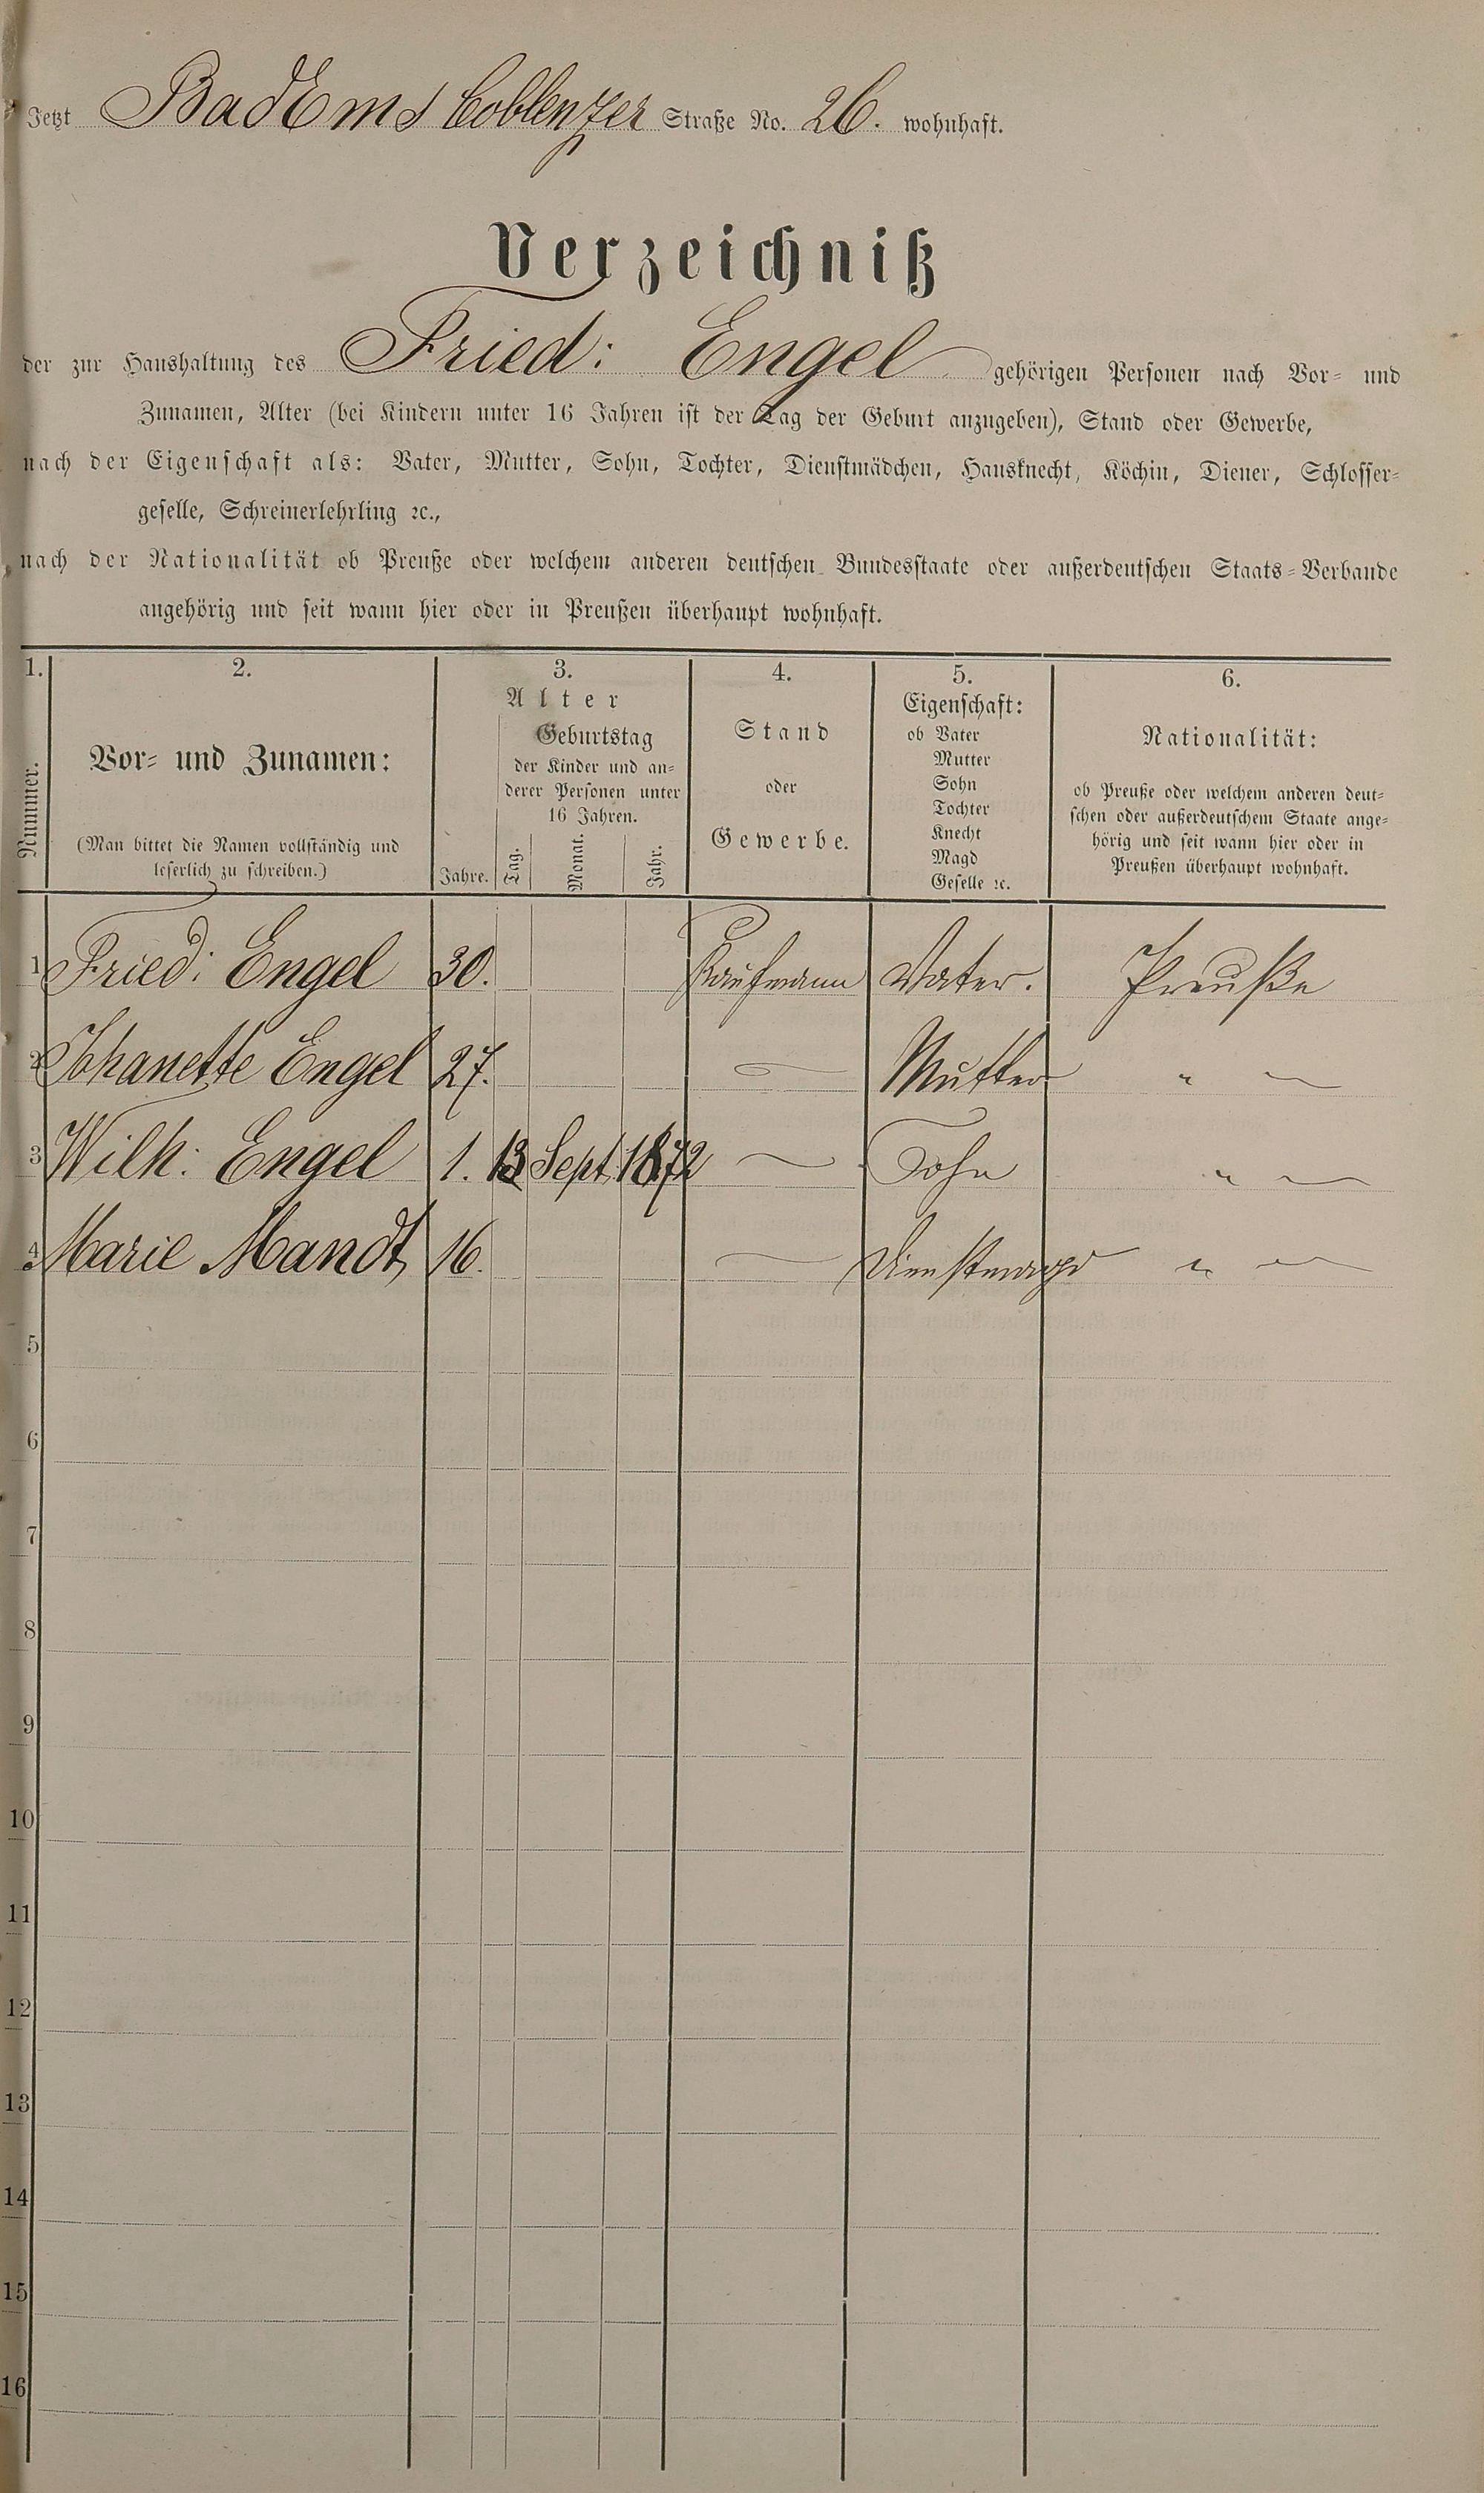 Jetzt Bad Ems Coblenzer Straße No. 26. wohnhaft.
Verzeichniß
der zur Haushaltung des Fried: Engel gehörigen Personen nach Vor- und
Zunamen, Alter (bei Kindern unter 16 Jahren ist der Tag der Geburt anzugeben), Stand oder Gewerbe,
nach der Eigenschaft als: Vater, Mutter, Sohn, Tochter, Dienstmädchen, Hausknecht, Köchin, Diener, Schlosser-
geselle, Schreinerlehrling ꝛc.,
nach der Nationalität ob Preuße oder welchem anderen deutschen Bundesstaate oder außerdeutschen Staats-Verbande
angehörig und seit wann hier oder in Preußen überhaupt wohnhaft.
1. 2. 3. 4. 5. 6.
Nummer.
Vor- und Zunamen:
(Man bittet die Namen vollständig und
leserlich zu schreiben.)
Alter
Jahre.
Geburtstag
der Kinder und an-
derer Personen unter
16 Jahren.
Tag. Monat. Jahr.
Stand
oder
Gewerbe.
Eigenschaft:
ob Vater
Mutter
Sohn
Tochter
Knecht
Magd
Geselle ꝛc.
Nationalität:
ob Preuße oder welchem anderen deut-
schen oder außerdeutschem Staate ange-
hörig und seit wann hier oder in
Preußen überhaupt wohnhaft.
1 Fried: Engel 30. Kaufmann Vater. Preuße
2 Johanette Engel 27. — Mutter " —
3 Wilh: Engel 1. 13 Sept. 1872 — Sohn " —
4 Marie Mandt 16. — Dienstmagd " —
5
6
7
8
9
10
11
12
13
14
15
16